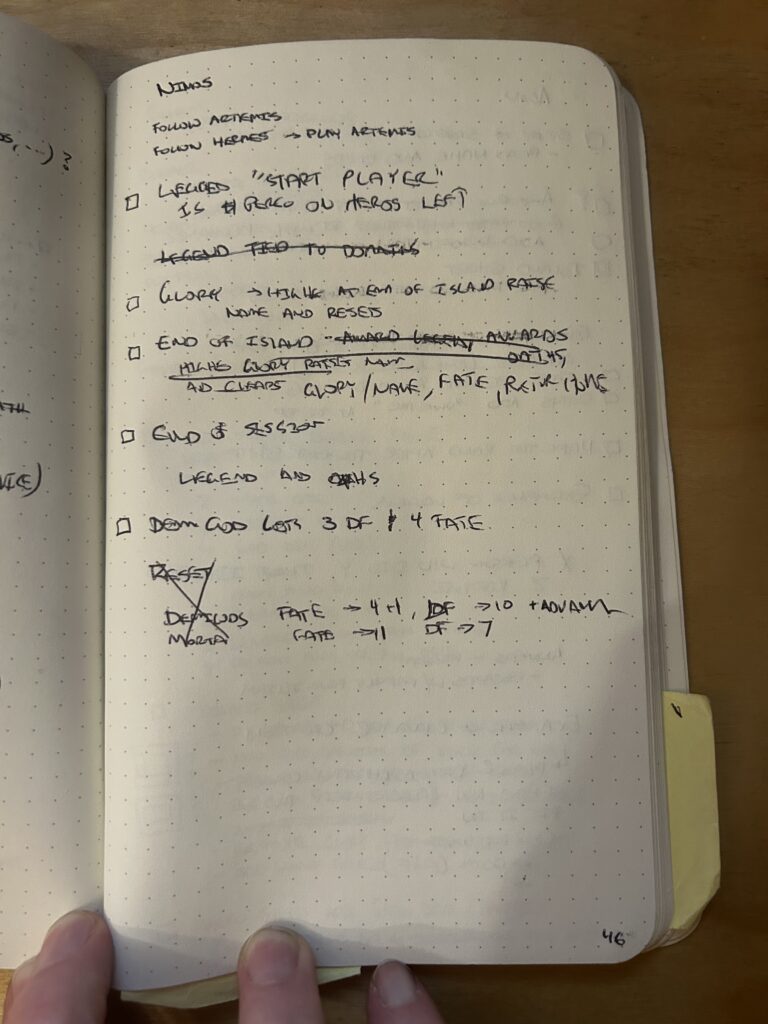 NIMOS
FOLLOW ARTEMIS
FOLLOW HERMES → PLAY ARTEMIS
□ "START PLAYER"
IS ON HEROS LEFT
LEGEND TIED TO DOMAINS
□ GLORY → HIGHE AT END OF ISLAND RAISE
NAME AND RESETS
□ END OF ISLAND AWARD AWARDS
HIGHE GLORY RAISES NAME OATHS,
AD CLEARS GLORY/NAME, FATE,
□ END OF SESSION
LEGEND AND OATHS
□ DEMI GOD 3 DF 4 FATE
RESET
DEMIGODS FATE → 4+1, DF → 10
MORTAL FATE → 11 DF → 7
46
) ?
VICE)